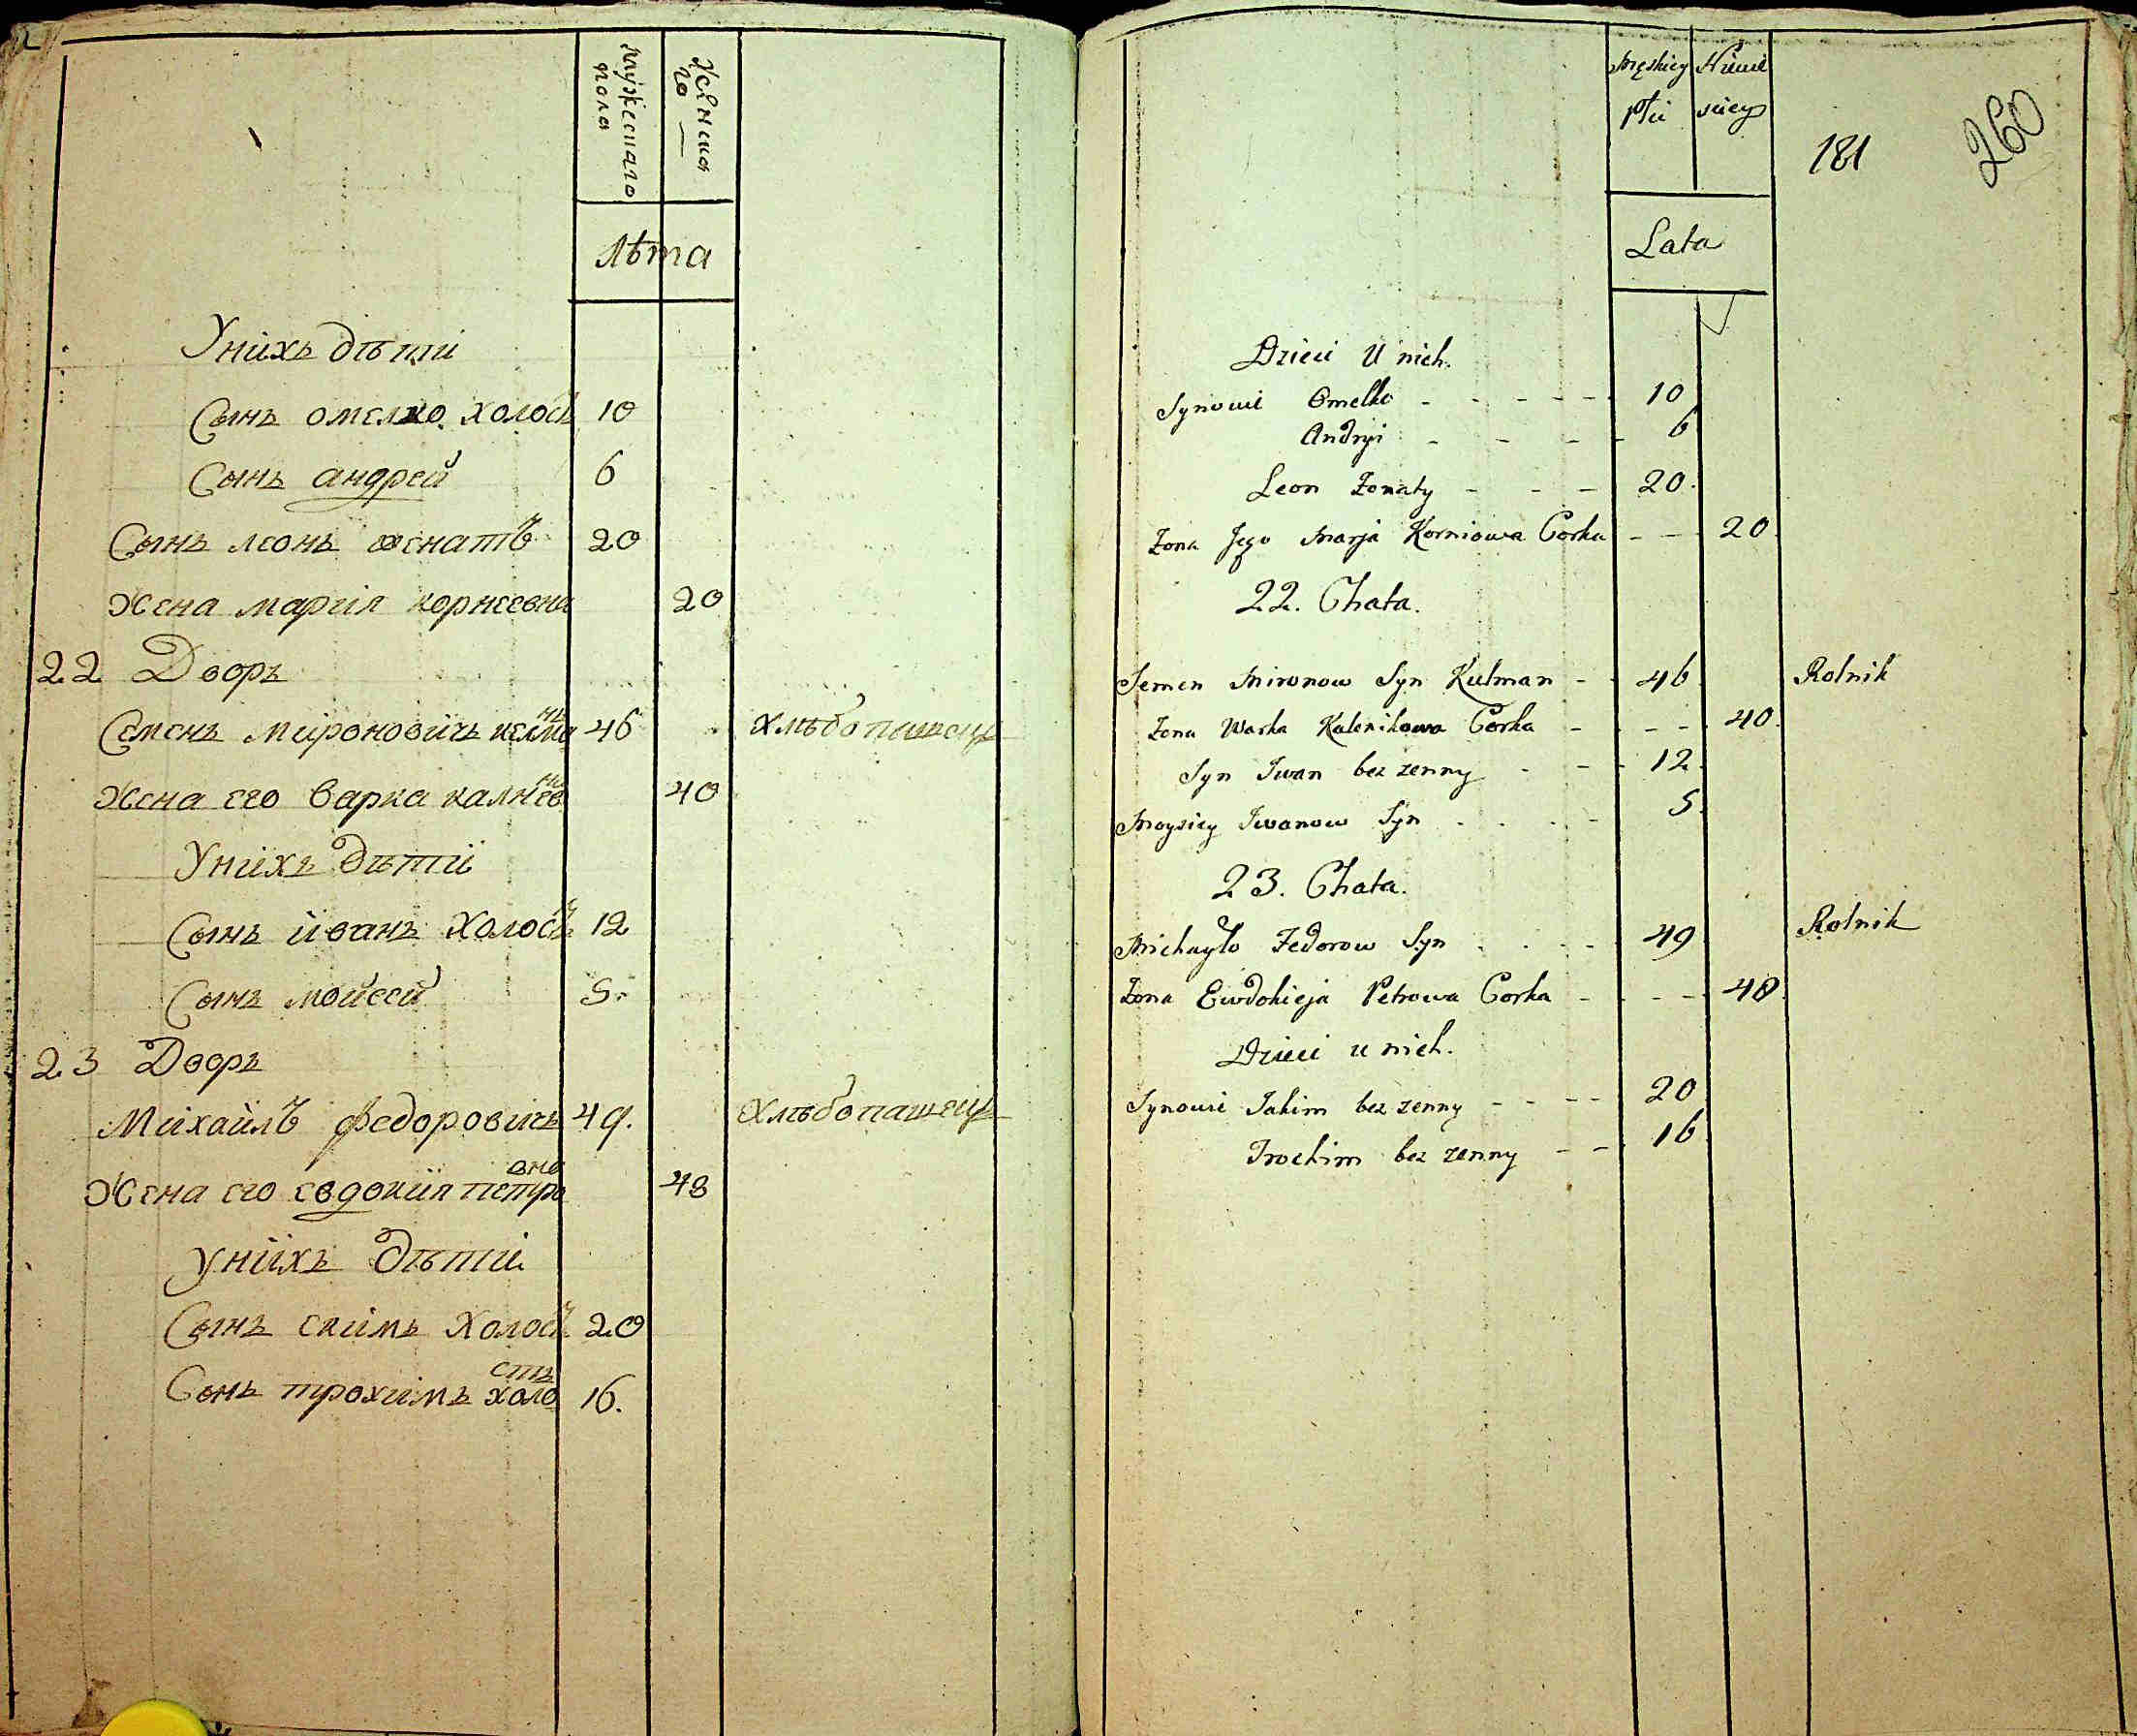 мужескаго пола
женска го
лѣта
У нихъ дѣти
Сынъ омелко холостъ 10
Сынъ андрей 6
Сынъ леонъ женатъ 20
Жена марія корнеевна 20
22 Дворъ
Семенъ мироновичъ 46 хлѣбопашецъ
Жена его варка 40
У нихъ дѣти
Сынъ иванъ холостъ 12
Сынъ мойсей 5.
23 Дворъ
Михайлъ федоровичъ 49. хлѣбопашецъ
Жена его евдокия петровна 48
У нихъ дѣти
Сынъ екимъ холостъ 20
Сынъ трохимъ холостъ 16.
260
181
Męskiey Płci
Lata
Dzieci U nich.
Synowie Omelko 10
Andryi 6
Leon Zonaty 20.
Zona Jego Marja Korniowa Corka 20.
22. Chata.
Semen Mironow Syn Kulman 46 Rolnik
Zona Warka Kalenikowa Corka 40.
Syn Iwan bez zenny 12.
Moysiey Iwanow Syn 5.
23. Chata.
Michayło Fedorow Syn 49 Rolnik
Zona Ewdokieja Petrowa Corka 48.
Dzieci u nich.
Synowie Jakim bez zenny 20
Trochim bez zenny 16.